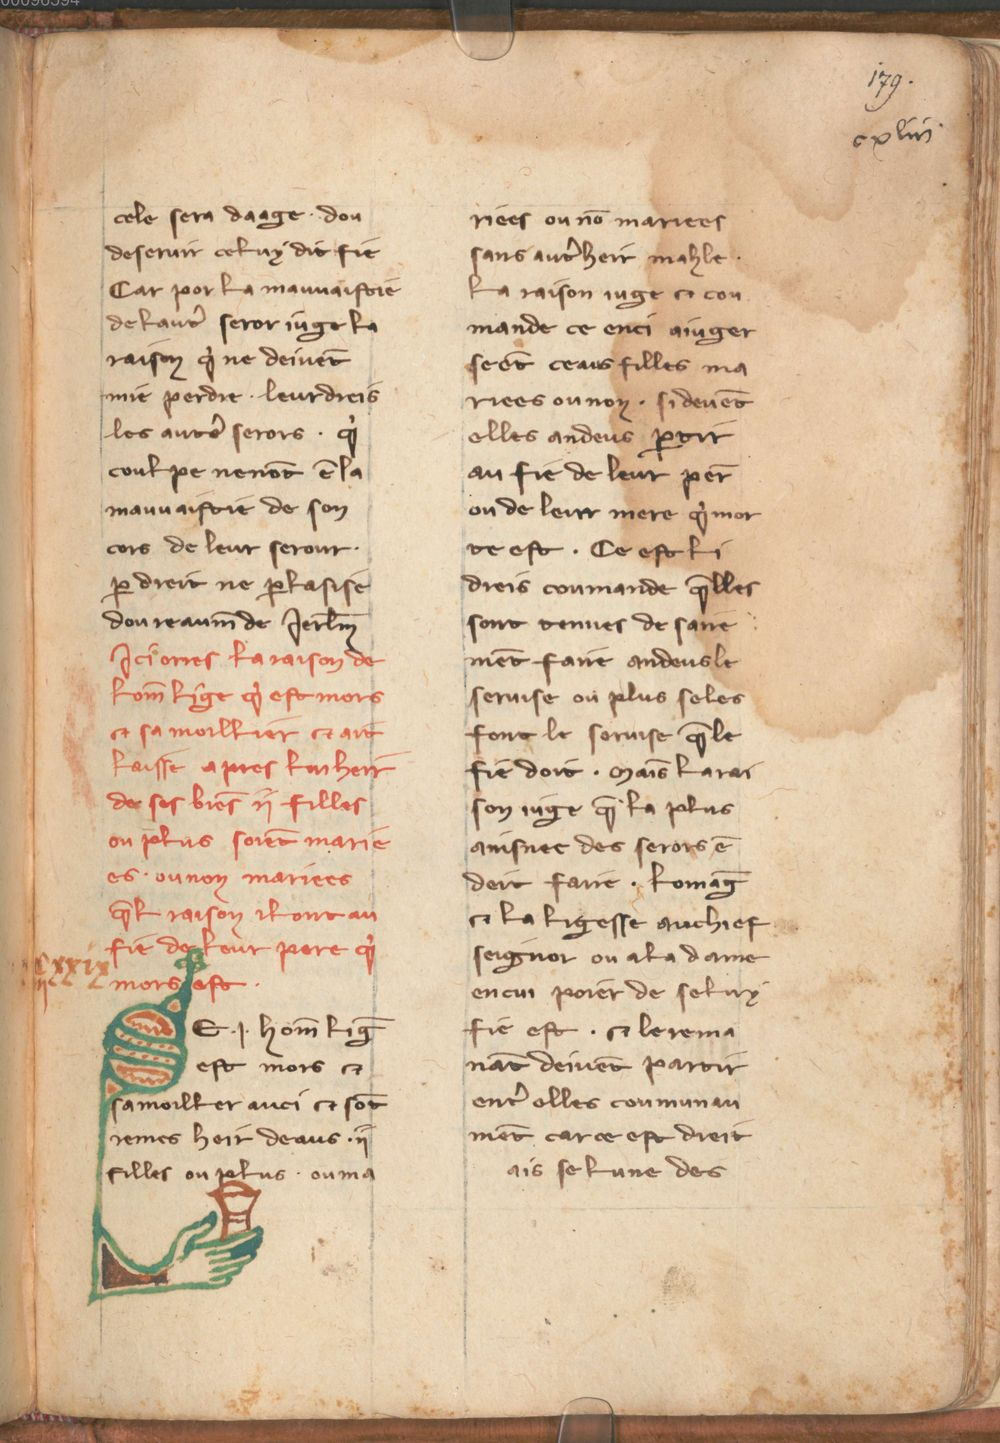 179.
cxliii
cele sera daage · dou
deseruir celuy dit fie
Car por la mauuaistie
de lautr̄ seror iuge la
raison q̇ ne deiuēt
mie perdre · leur dreis
les autr̄ serors · q̇
coulpe nenōt ē la
mauuaistie de son
cors de leur serour ·
ꝑ dreit ne ꝑ lasise
dou reaum̄ de Jerl̄m
Ici ores la raison de
lom̄ lige q̇ est mors
et sa moillier et ait
laisse apres lui heir
de ses biēs ii filles
ou plus soiēt marie
es · ou non mariees
q̄l raison il ont au
fie de leur pere q̇
mors est ·
Cxxix
E · i · hom̄ liḡ
est mors et
sa moillier auci et sōt
remes heir deaus · ii
filles ou plus · ou ma
riees ou nō mariees
sans autr̄ heir mahle ·
la raison iuge et cou
mande ce enci aiuger
seēt ceaus filles ma
riees ou non · si deuēt
elles andeus ꝑtir
au fie de leur per̄
ou de leur mere q̇ mor
te est · Ce est li
dreis coumande q̄lles
sont tenues de saire
mēt faire andeus le
seruise ou plus se les
font le seruise q̄ le
fie doit · Mais la rai
son iuge q̄ la plus
ainsnee des serors ē
deit faire · lomaḡ
et la ligesse au chief
seignor ou a la dame
en cui poier̄ de seluy
fie est · et le rema
nāt deiuēt partir
entr̄ elles coumunau
mēt car ce est dreit
ais se lune des